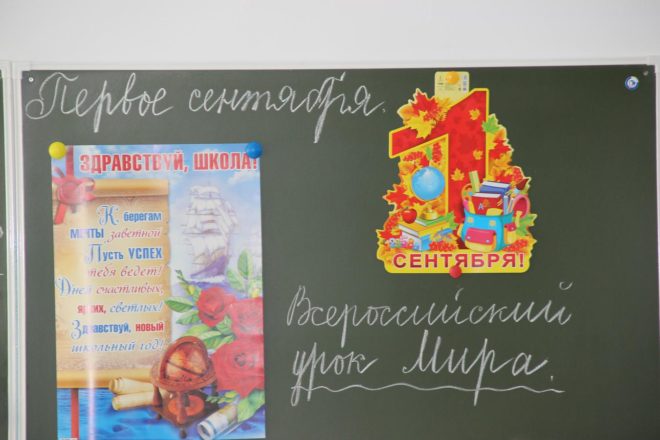 Первое сентября.
ЗДРАВСТВУЙ, ШКОЛА!
К берегам
МЕЧТЫ заветной
Пусть УСПЕХ
тебя ведет!
Дней счастливых,
ярких, светлых!
Здравствуй, новый
школьный год!
1
СЕНТЯБРЯ!
Всероссийский
урок Мира.